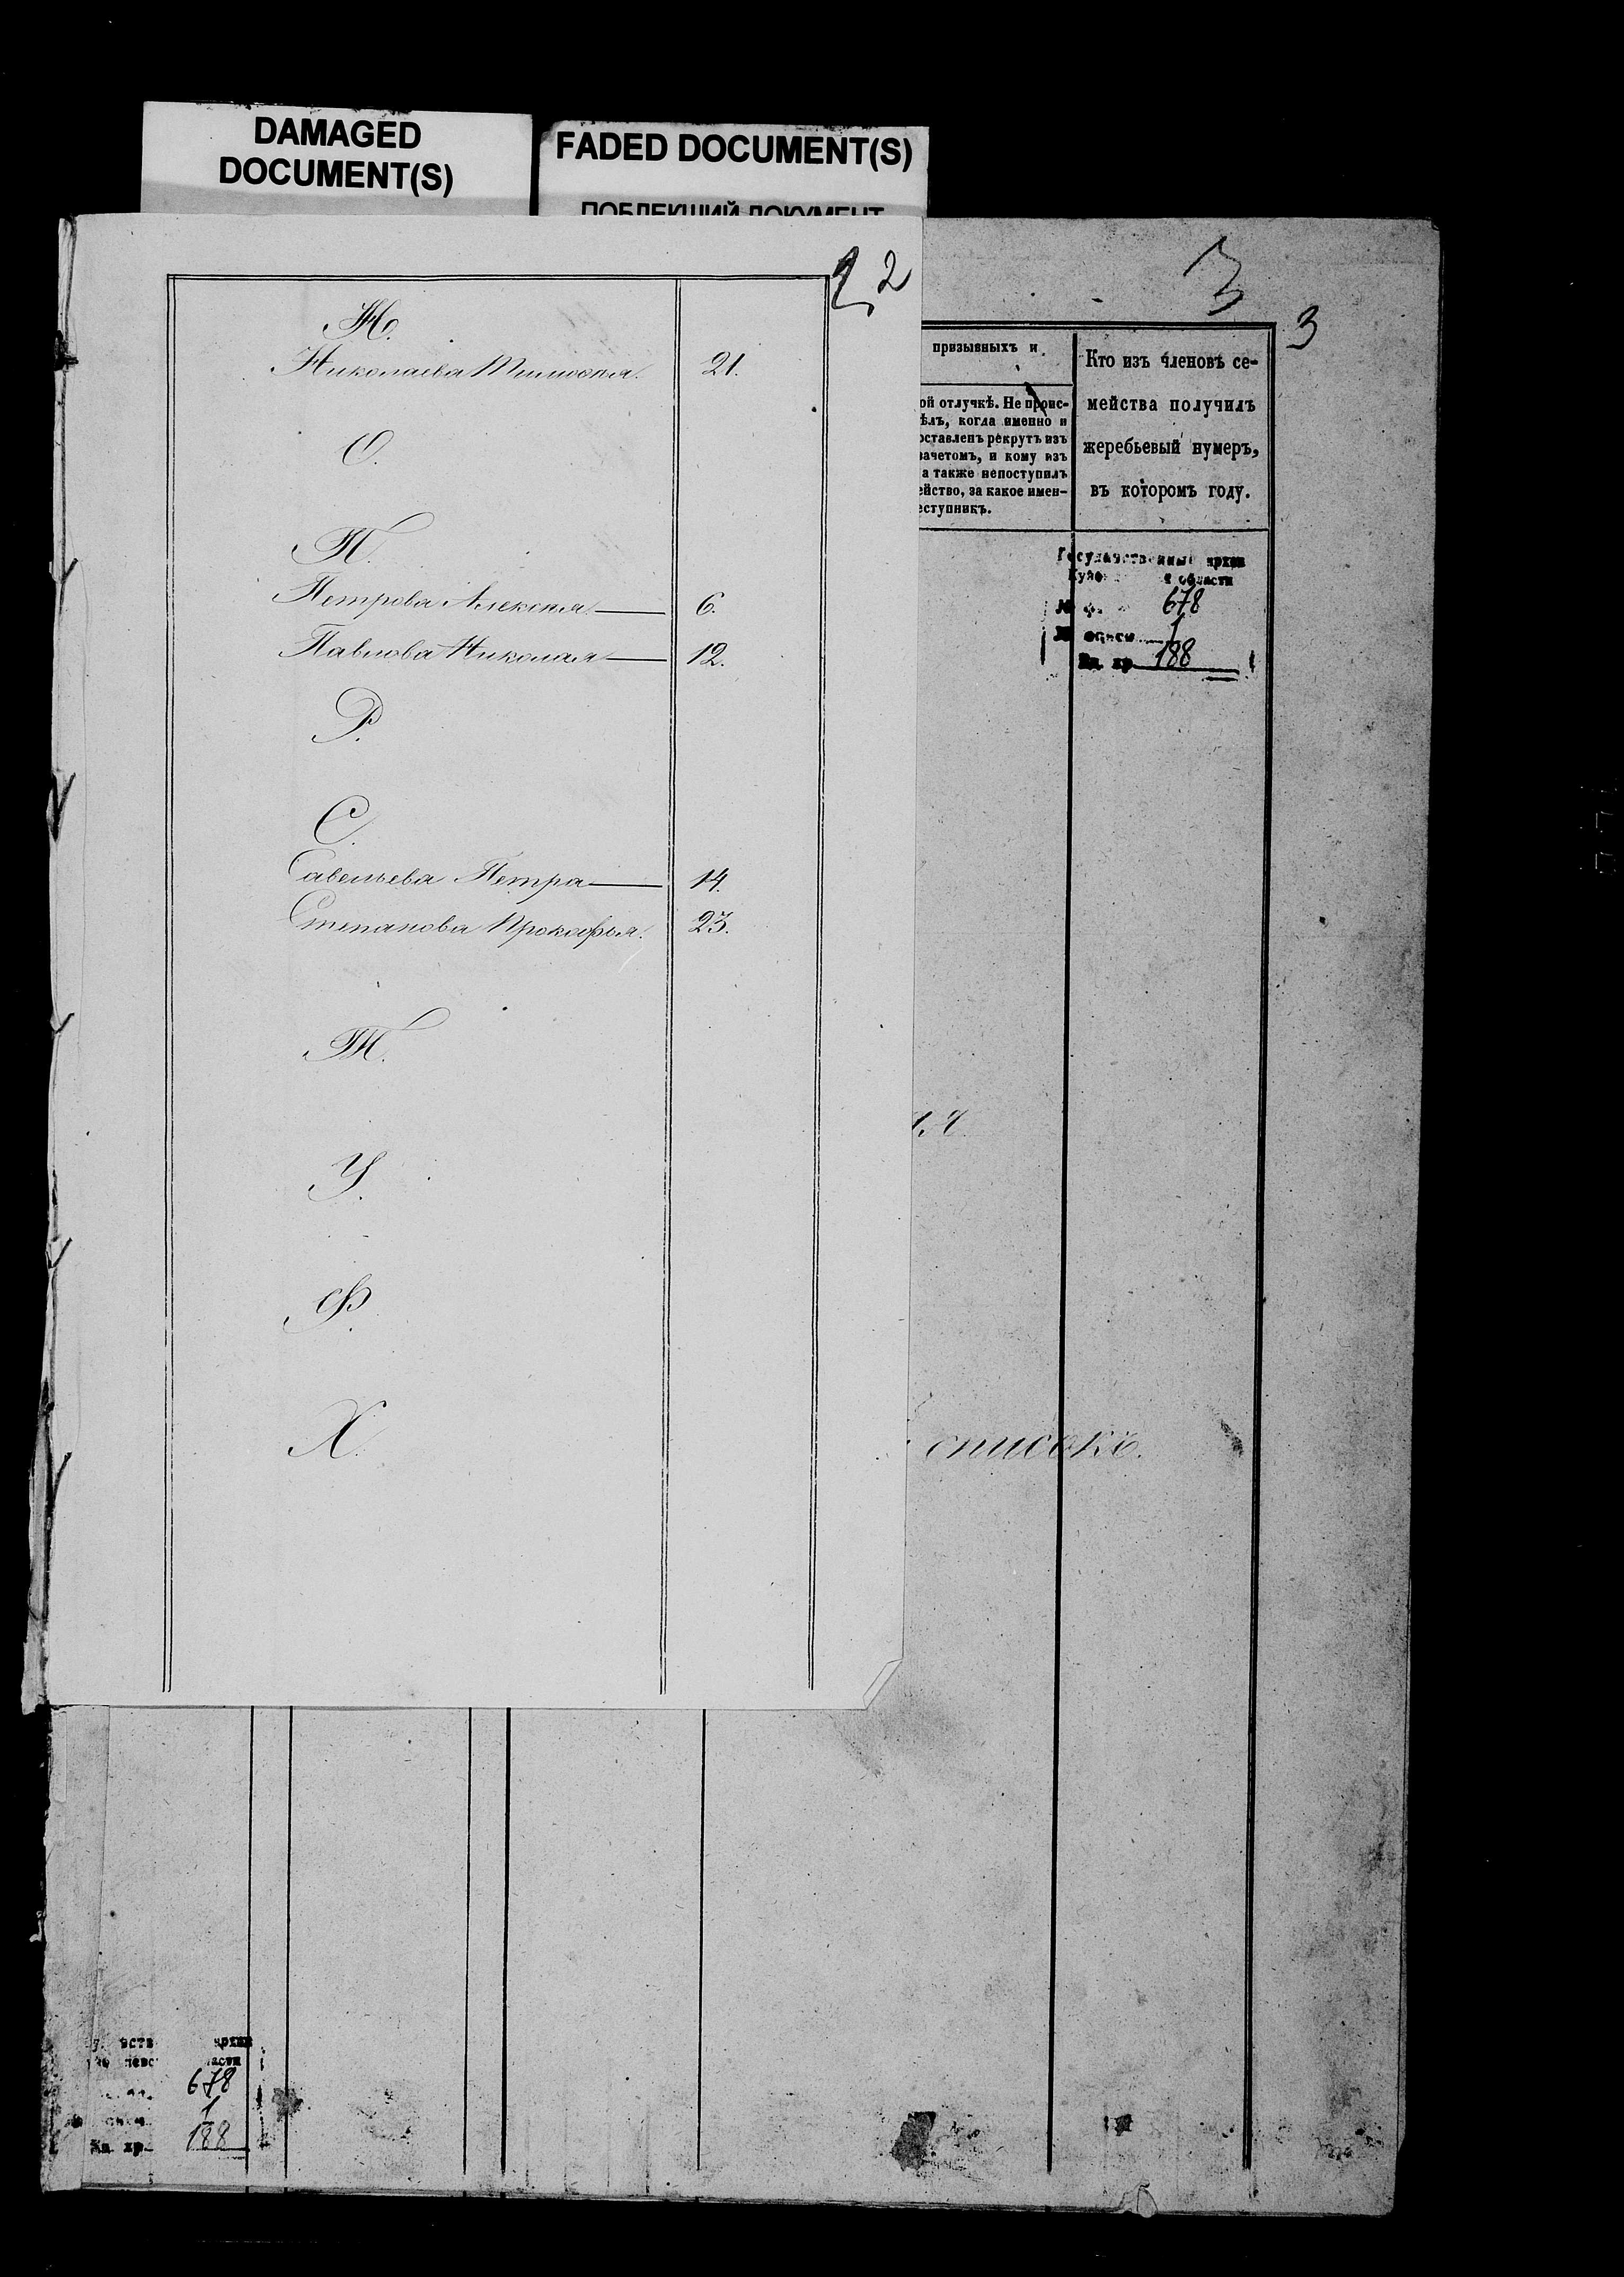 DAMAGED
DOCUMENT(S)
FADED DOCUMENT(S)
ПОБЛЕКШИЙ ДОКУМЕНТ
2
Н.
Николаева Тимофея. 21.
О.
П.
Петрова Алексея 6.
Павлова Николая 12.
Р.
С.
Савельева Петра 14.
Степанова Прокофья. 23.
Т.
У.
Ф.
Х.
3
3
призывныхъ и
ой отлучкѣ. Не проис-
ѣлъ, когда именно и
оставленъ рекрутъ изъ
зачетомъ, и кому изъ
а также непоступилъ
ейство, за какое имен-
еступникъ.
Кто изъ членовъ се-
мейства получилъ
жеребьевый нумеръ,
въ которомъ году.
Государственный архив
области
№ 678
№ описи 1
Ед. хр. 188
спискѣ.
678
1
Ед. хр. 188